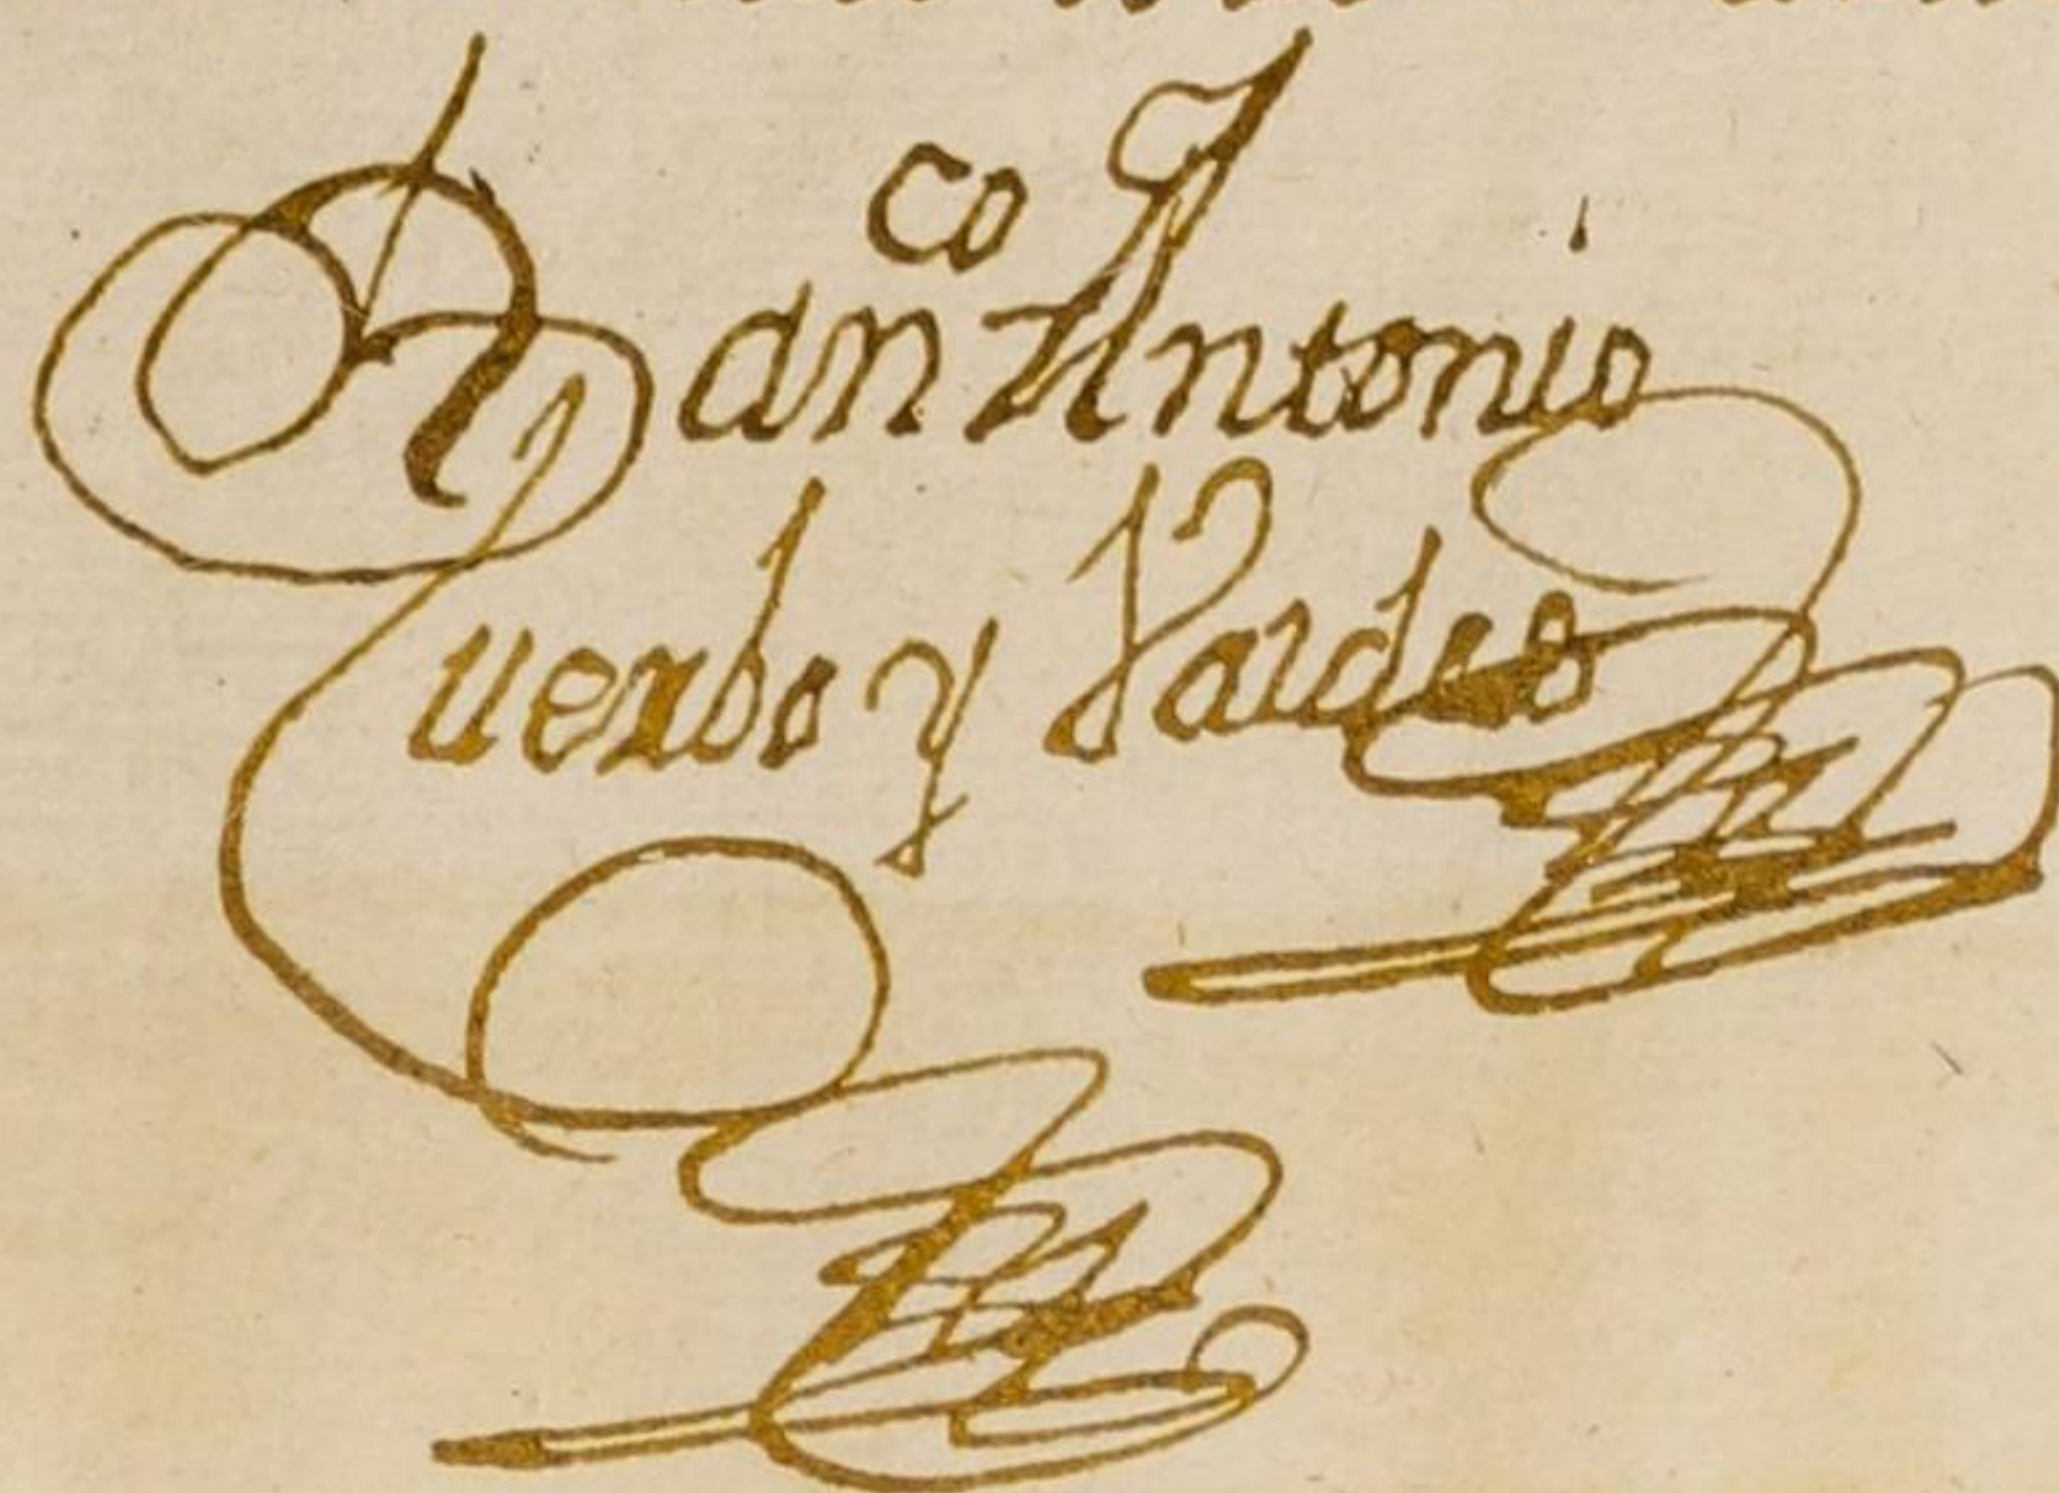 Fran^co Antonio
Cuerbo y Valdes